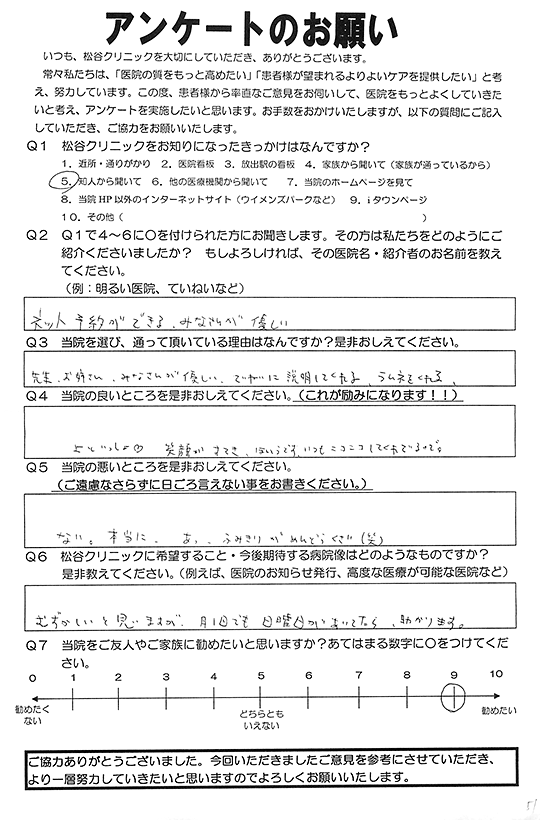 アンケートのお願い
いつも、松谷クリニックを大切にしていただき、ありがとうございます。
常々私たちは、「医院の質をもっと高めたい」「患者様が望まれるよりよいケアを提供したい」と考
え、努力しています。この度、患者様から率直なご意見をお伺いして、医院をもっとよくしていきた
いと考え、アンケートを実施したいと思います。お手数をおかけいたしますが、以下の質問にご記入
していただき、ご協力をお願いいたします。
Q1 松谷クリニックをお知りになったきっかけはなんですか？
1．近所・通りがかり 2．医院看板 3．放出駅の看板 4．家族から聞いて（家族が通っているから）
5．知人から聞いて 6．他の医療機関から聞いて 7．当院のホームページを見て
8．当院HP以外のインターネットサイト（ウイメンズパークなど） 9．iタウンページ
10．その他（ ）
Q2 Q1で4～6に○を付けられた方にお聞きします。その方は私たちをどのようにご
紹介くださいましたか？ もしよろしければ、その医院名・紹介者のお名前を教え
てください。
（例：明るい医院、ていねいなど）
ネット予約ができる、みなさんが優しい
Q3 当院を選び、通って頂いている理由はなんですか？是非おしえてください。
先生、お姉さん、みなさんが優しい、でいねいに説明してくれる、ラムネをくれる、
Q4 当院の良いところを是非おしえてください。（これが励みになります！！）
笑顔が すてき、いつもニコニコしてくれているので。
Q5 当院の悪いところを是非おしえてください。
（ご遠慮なさらずに日ごろ言えない事をお書きください。）
ない。本当に。 あっ、ふみきりがめんどうくさい（笑）
Q6 松谷クリニックに希望すること・今後期待する病院像はどのようなものですか？
是非教えてください。（例えば、医院のお知らせ発行、高度な医療が可能な医院など）
むずかしいと思いますが、月1回でも日曜日があいてたら、助かります。
Q7 当院をご友人やご家族に勧めたいと思いますか？あてはまる数字に○をつけてくだ
さい。
0 1 2 3 4 5 6 7 8 9 10
勧めたく
ない
どちらとも
いえない
勧めたい
ご協力ありがとうございました。今回いただきましたご意見を参考にさせていただき、
より一層努力していきたいと思いますのでよろしくお願いいたします。